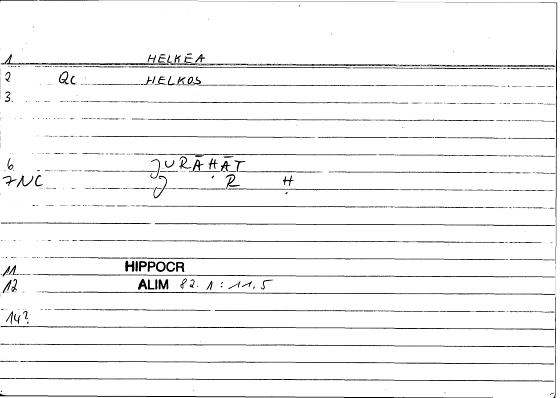 1 HELKEA
2 Qc HELKOS
3.
6 ǦURĀḤĀT
7 NC Ǧ R Ḥ
11 HIPPOCR
12 ALIM 82.1:11.5
14?